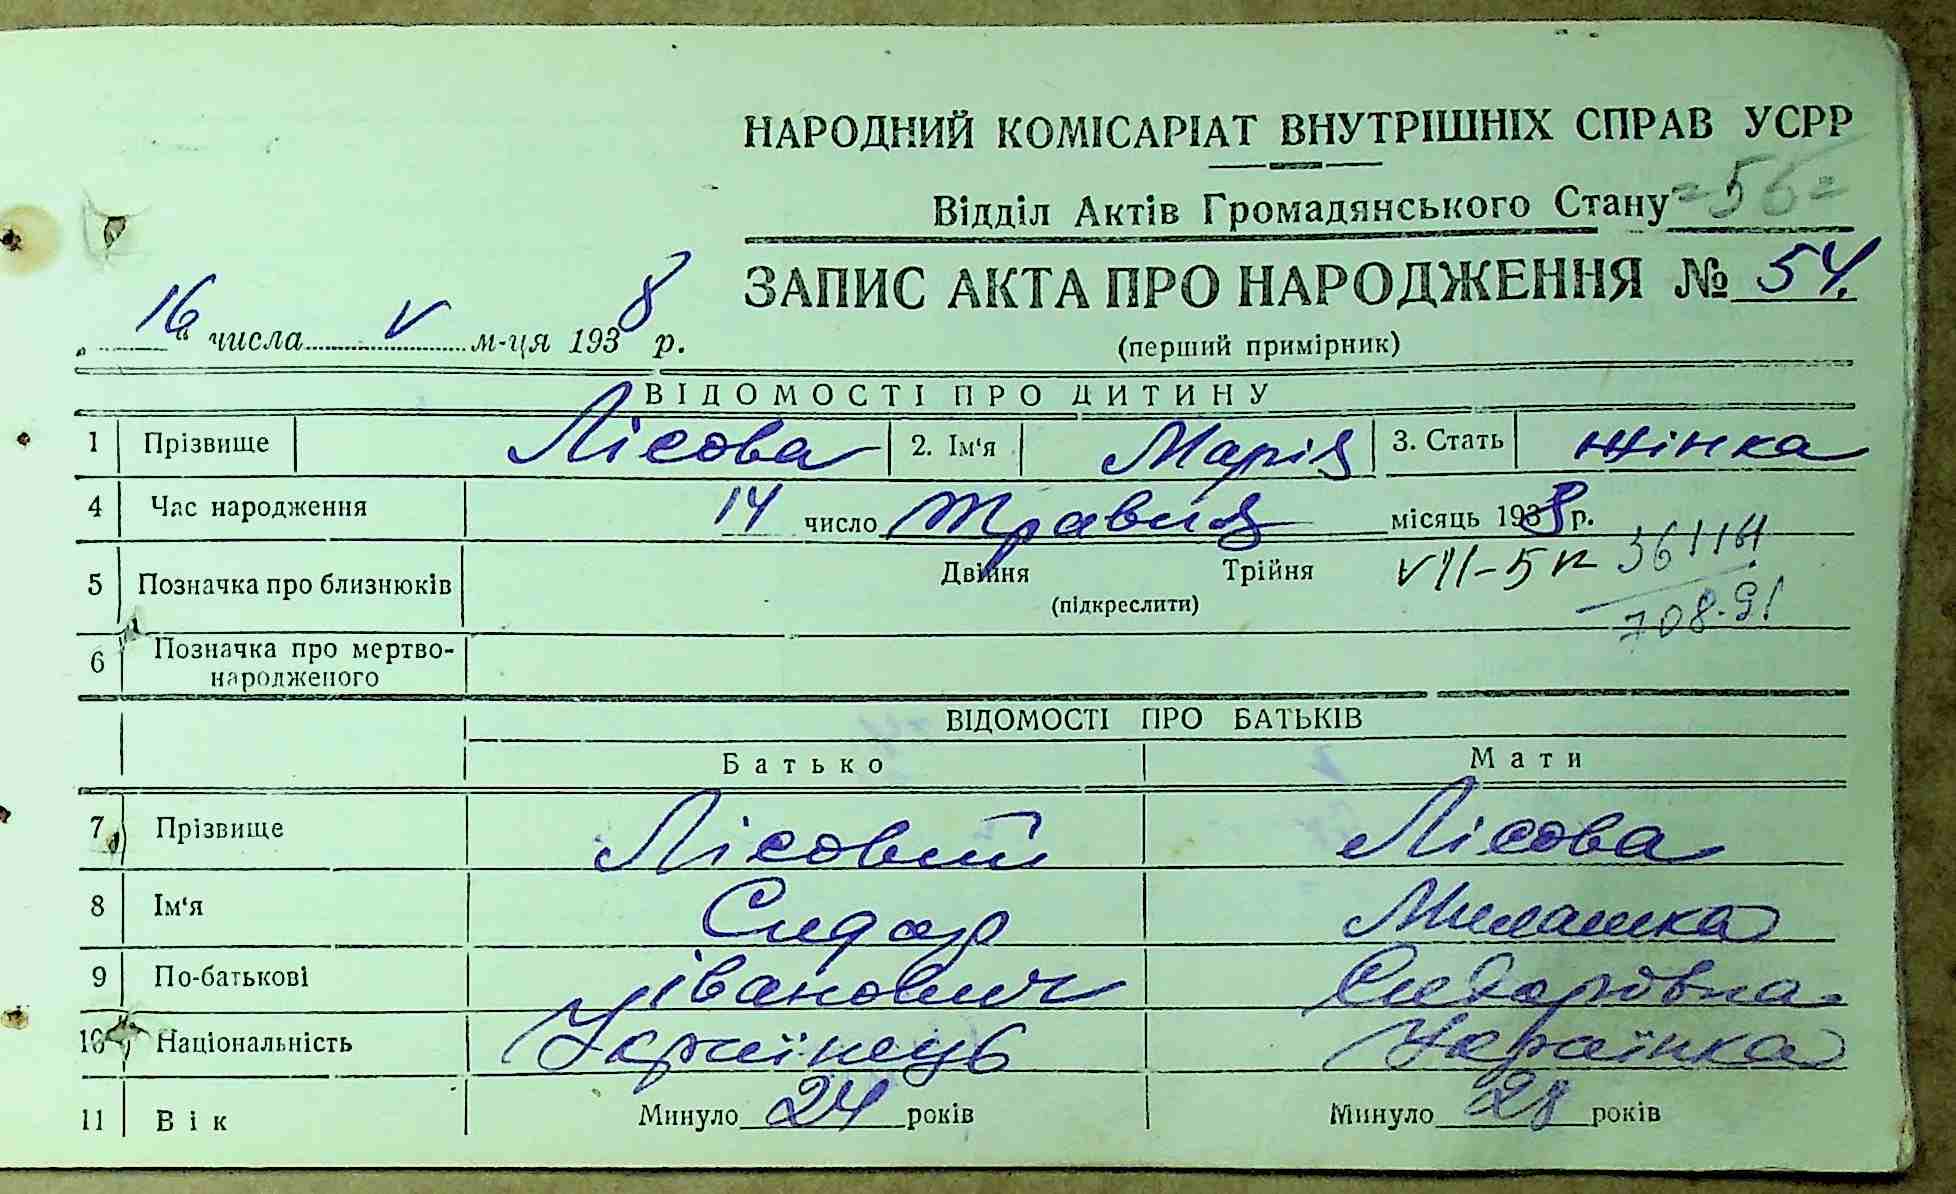 НАРОДНИЙ КОМІСАРІАТ ВНУТРІШНІХ СПРАВ УСРР
Відділ Актів Громадянського Стану =56=
ЗАПИС АКТА ПРО НАРОДЖЕННЯ № 54.
„16“ числа V м-ця 1938 р.
(перший примірник)
ВІДОМОСТІ ПРО ДИТИНУ
1 Прізвище Лісова 2. Ім'я Марія 3. Стать жінка
4 Час народження 14 число Травня місяць 1938 р.
5 Позначка про близнюків Двійня Трійня VII-5к
(підкреслити) 708.91
6 Позначка про мертво-
народженого
ВІДОМОСТІ ПРО БАТЬКІВ
Батько Мати
7 Прізвище Лісовий Лісова
8 Ім'я Сидор Милашка
9 По-батькові Іванович Сидоровна
10 Національність Українець Українка
11 Вік Минуло 24 років Минуло 28 років